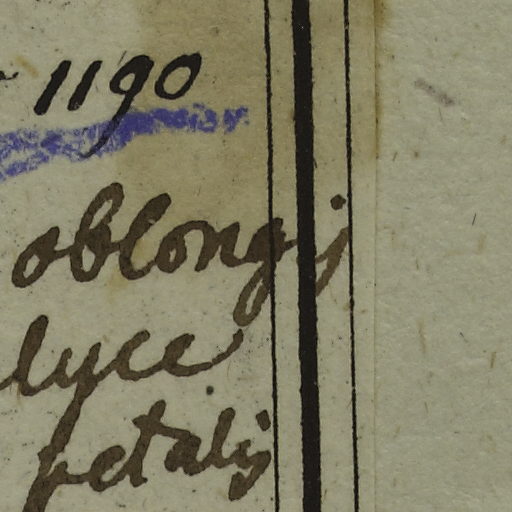 1190
oblongij
lyce
petalis